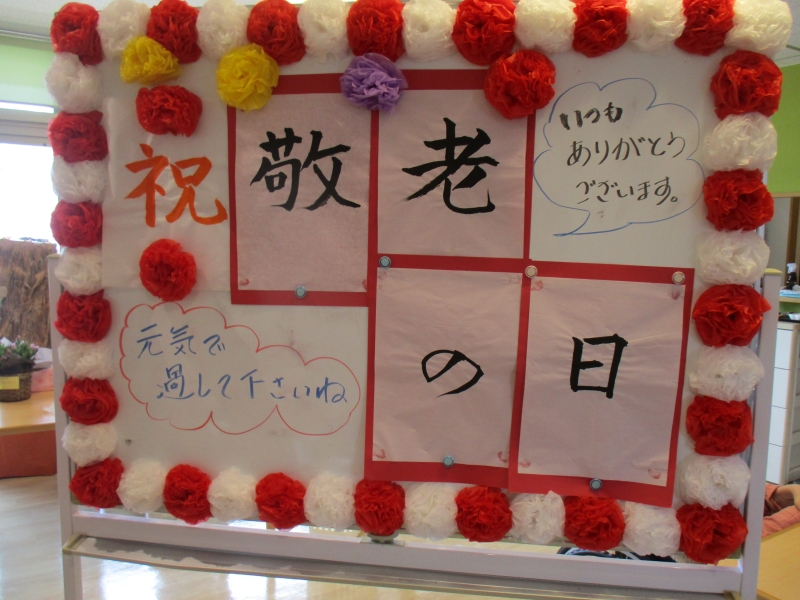 祝
敬老
の日
いつも
ありがとう
ございます。
元気で
過して下さいね